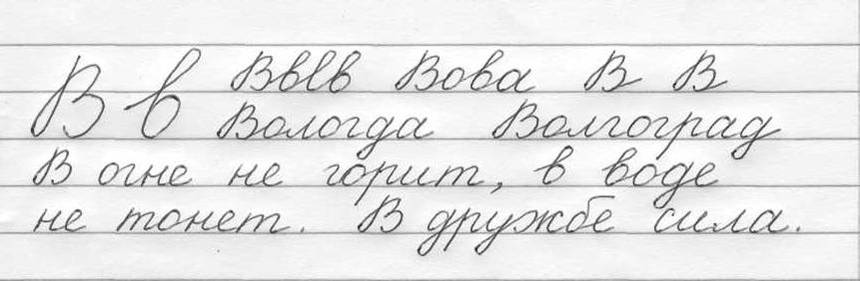 В в Ввlв Вова В В
Вологда Волгоград
В огне не горит, в воде
не тонет. В дружбе сила.